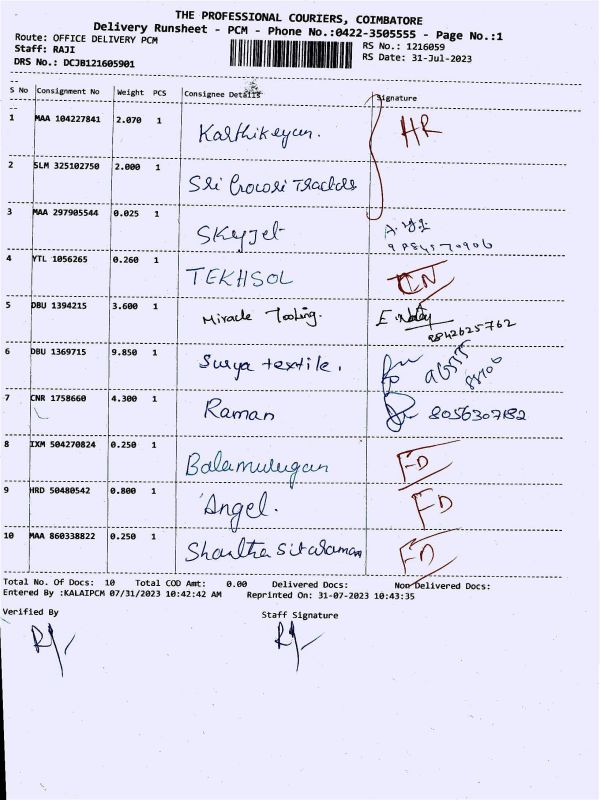 THE PROFESSIONAL COURIERS, COIMBATORE
Delivery Runsheet - PCM - Phone No.:0422-3505555 - Page No.:1
Route: OFFICE DELIVERY PCM RS No.: 1216059
Staff: RAJI RS Date: 31-Jul-2023
DRS No.: DCJB121605901
S No Consignment No Weight PCS Consignee Details Signature
1 MAA 104227841 2.070 1 Karthikeyan. HR
2 SLM 325102750 2.000 1 Sri Tractors
3 MAA 297905544 0.025 1 SKyJet
4 YTL 1056265 0.260 1 TEKHSOL CN
5 DBU 1394215 3.600 1 Miracle Tooling. 9842625762
6 DBU 1369715 9.850 1 Surya textile.
7 CNR 1758660 4.300 1 Raman 8056307182
8 IXM 504270824 0.250 1 Balamurugan FD
9 HRD 50480542 0.800 1 Angel. FD
10 MAA 860338822 0.250 1 Shantha Sitaraman FD
Total No. Of Docs: 10 Total COD Amt: 0.00 Delivered Docs: Non Delivered Docs:
Entered By :KALAIPCM 07/31/2023 10:42:42 AM Reprinted On: 31-07-2023 10:43:35
Verified By Staff Signature